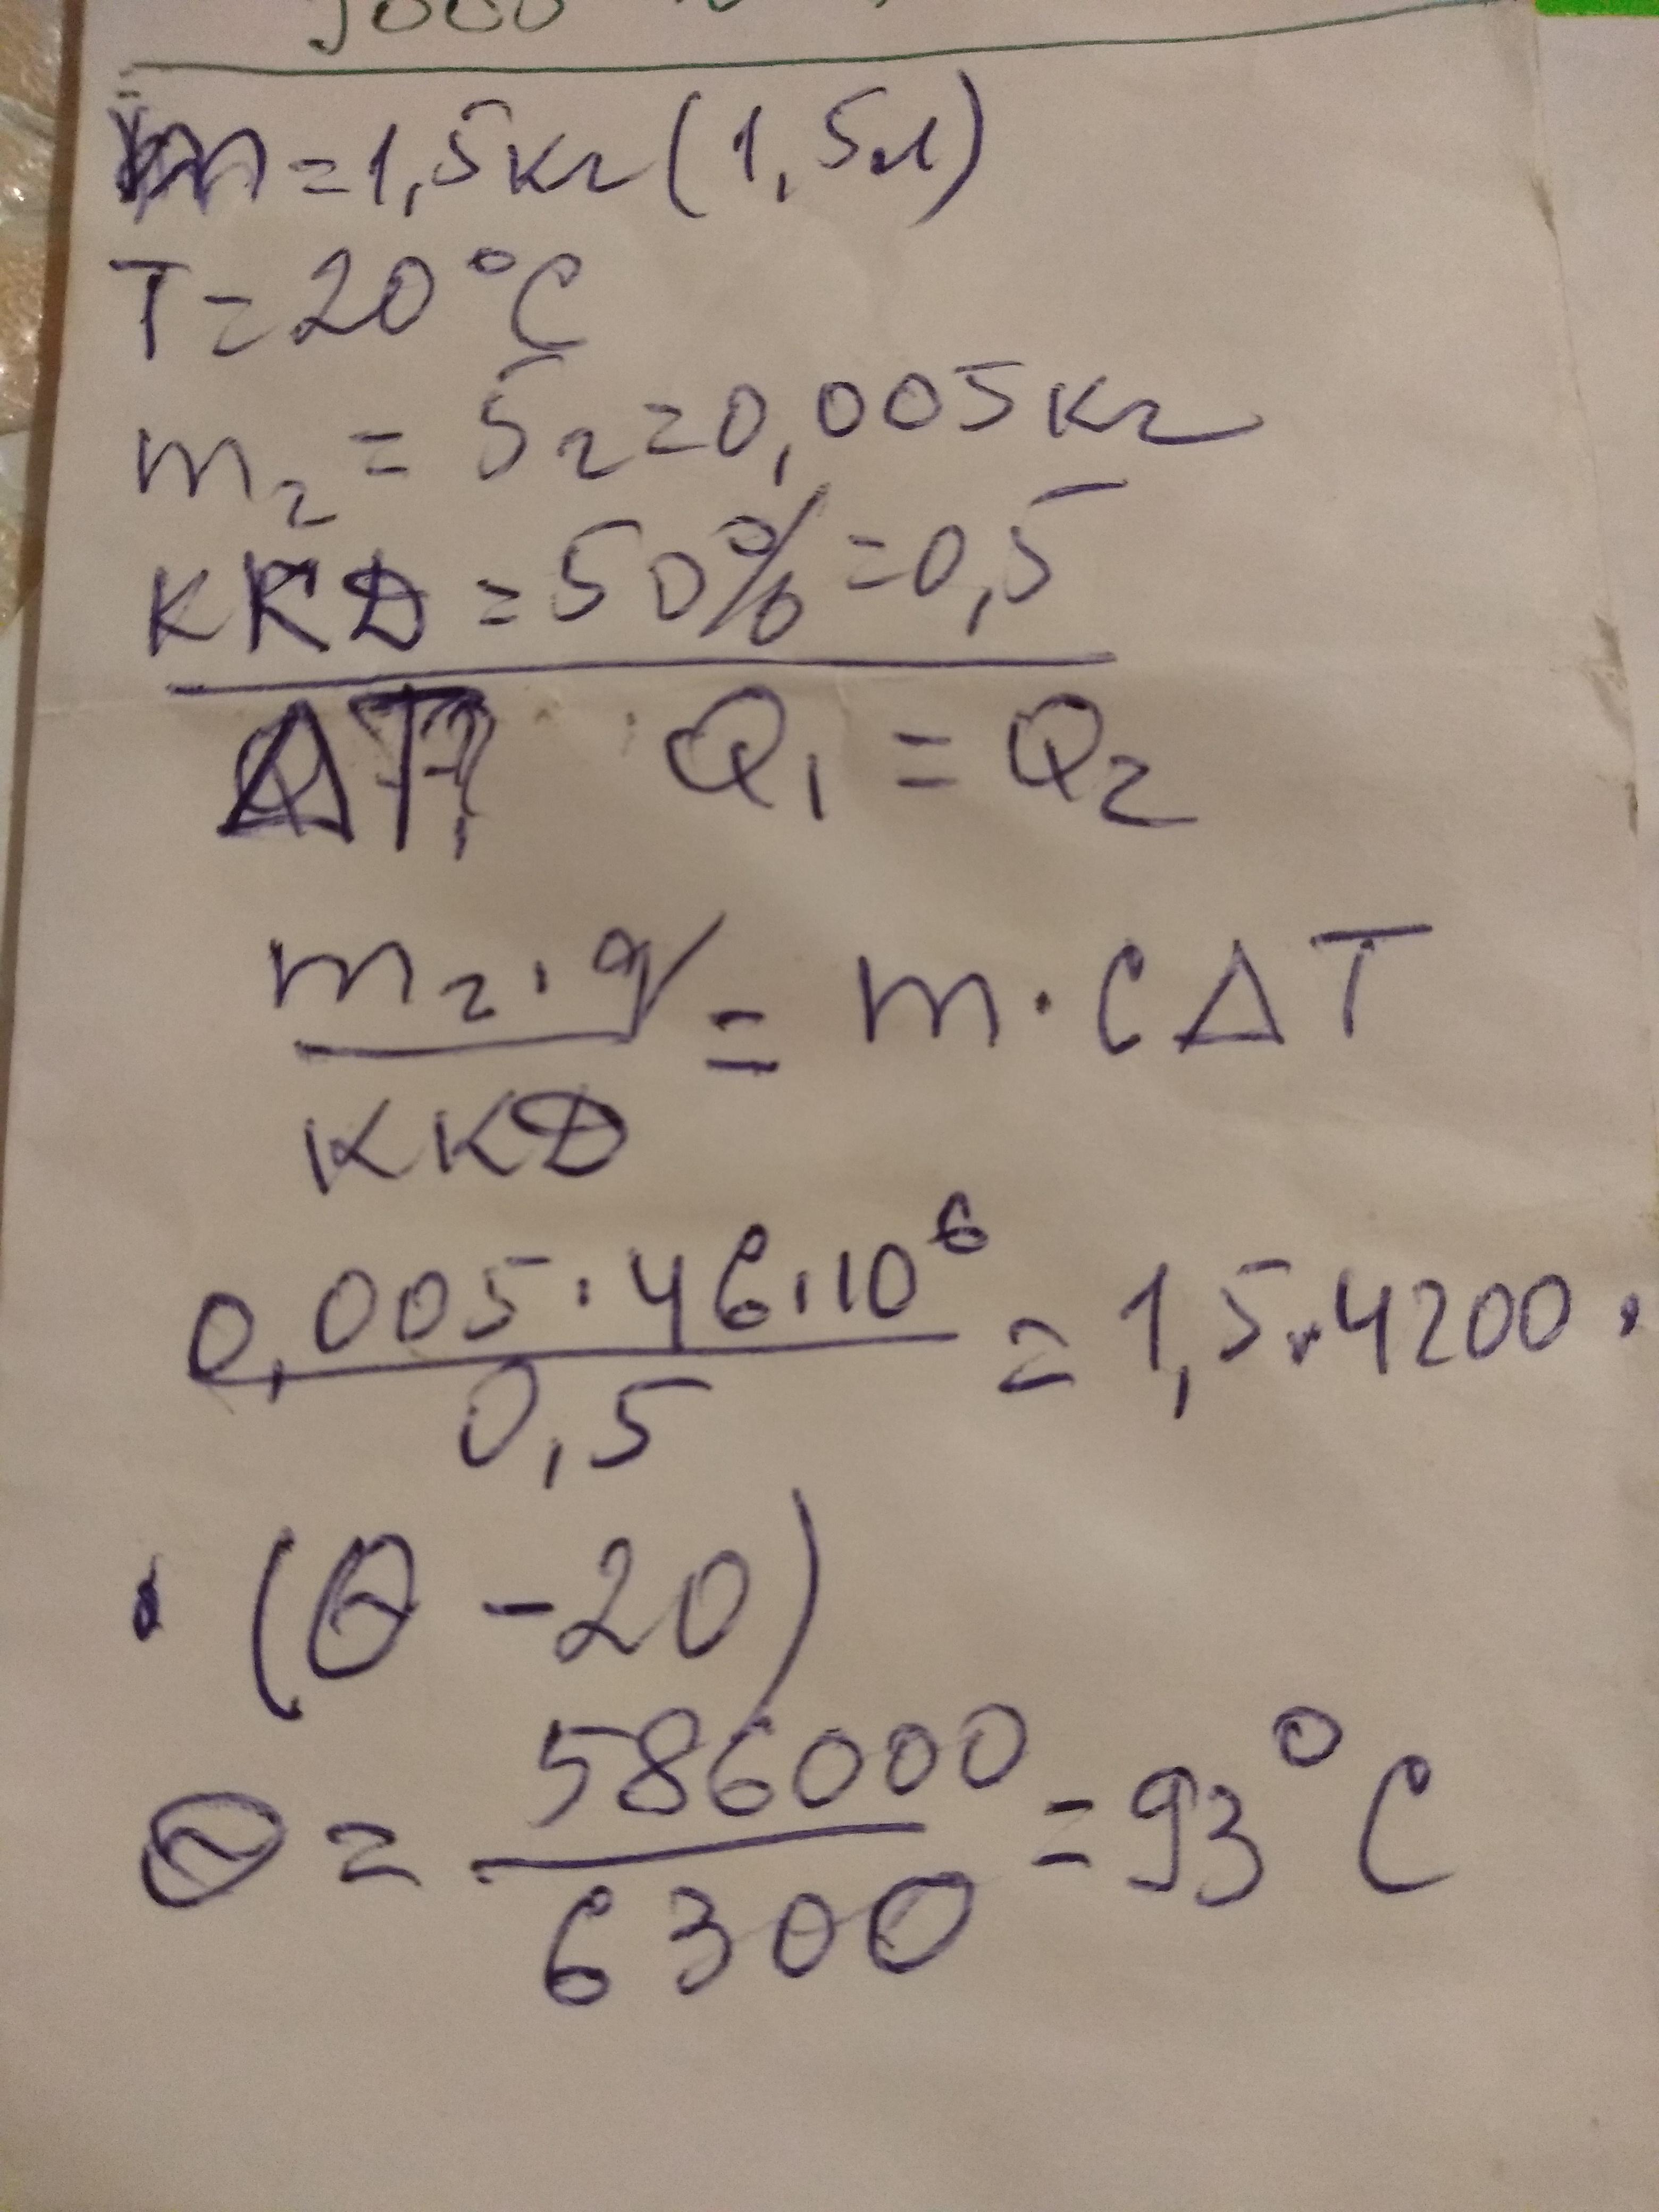 m = 1,5 кг (1,5 л)
T = 20 °C
m₂ = 5 г = 0,005 кг
ККD = 50% = 0,5
ΔT? Q₁ = Q₂
m₂ · q / ККD = m · C Δ T
0,005 · 46 · 10⁶ / 0,5 = 1,5 · 4200 ·
· (θ - 20)
θ = 586000 / 6300 = 93 °C